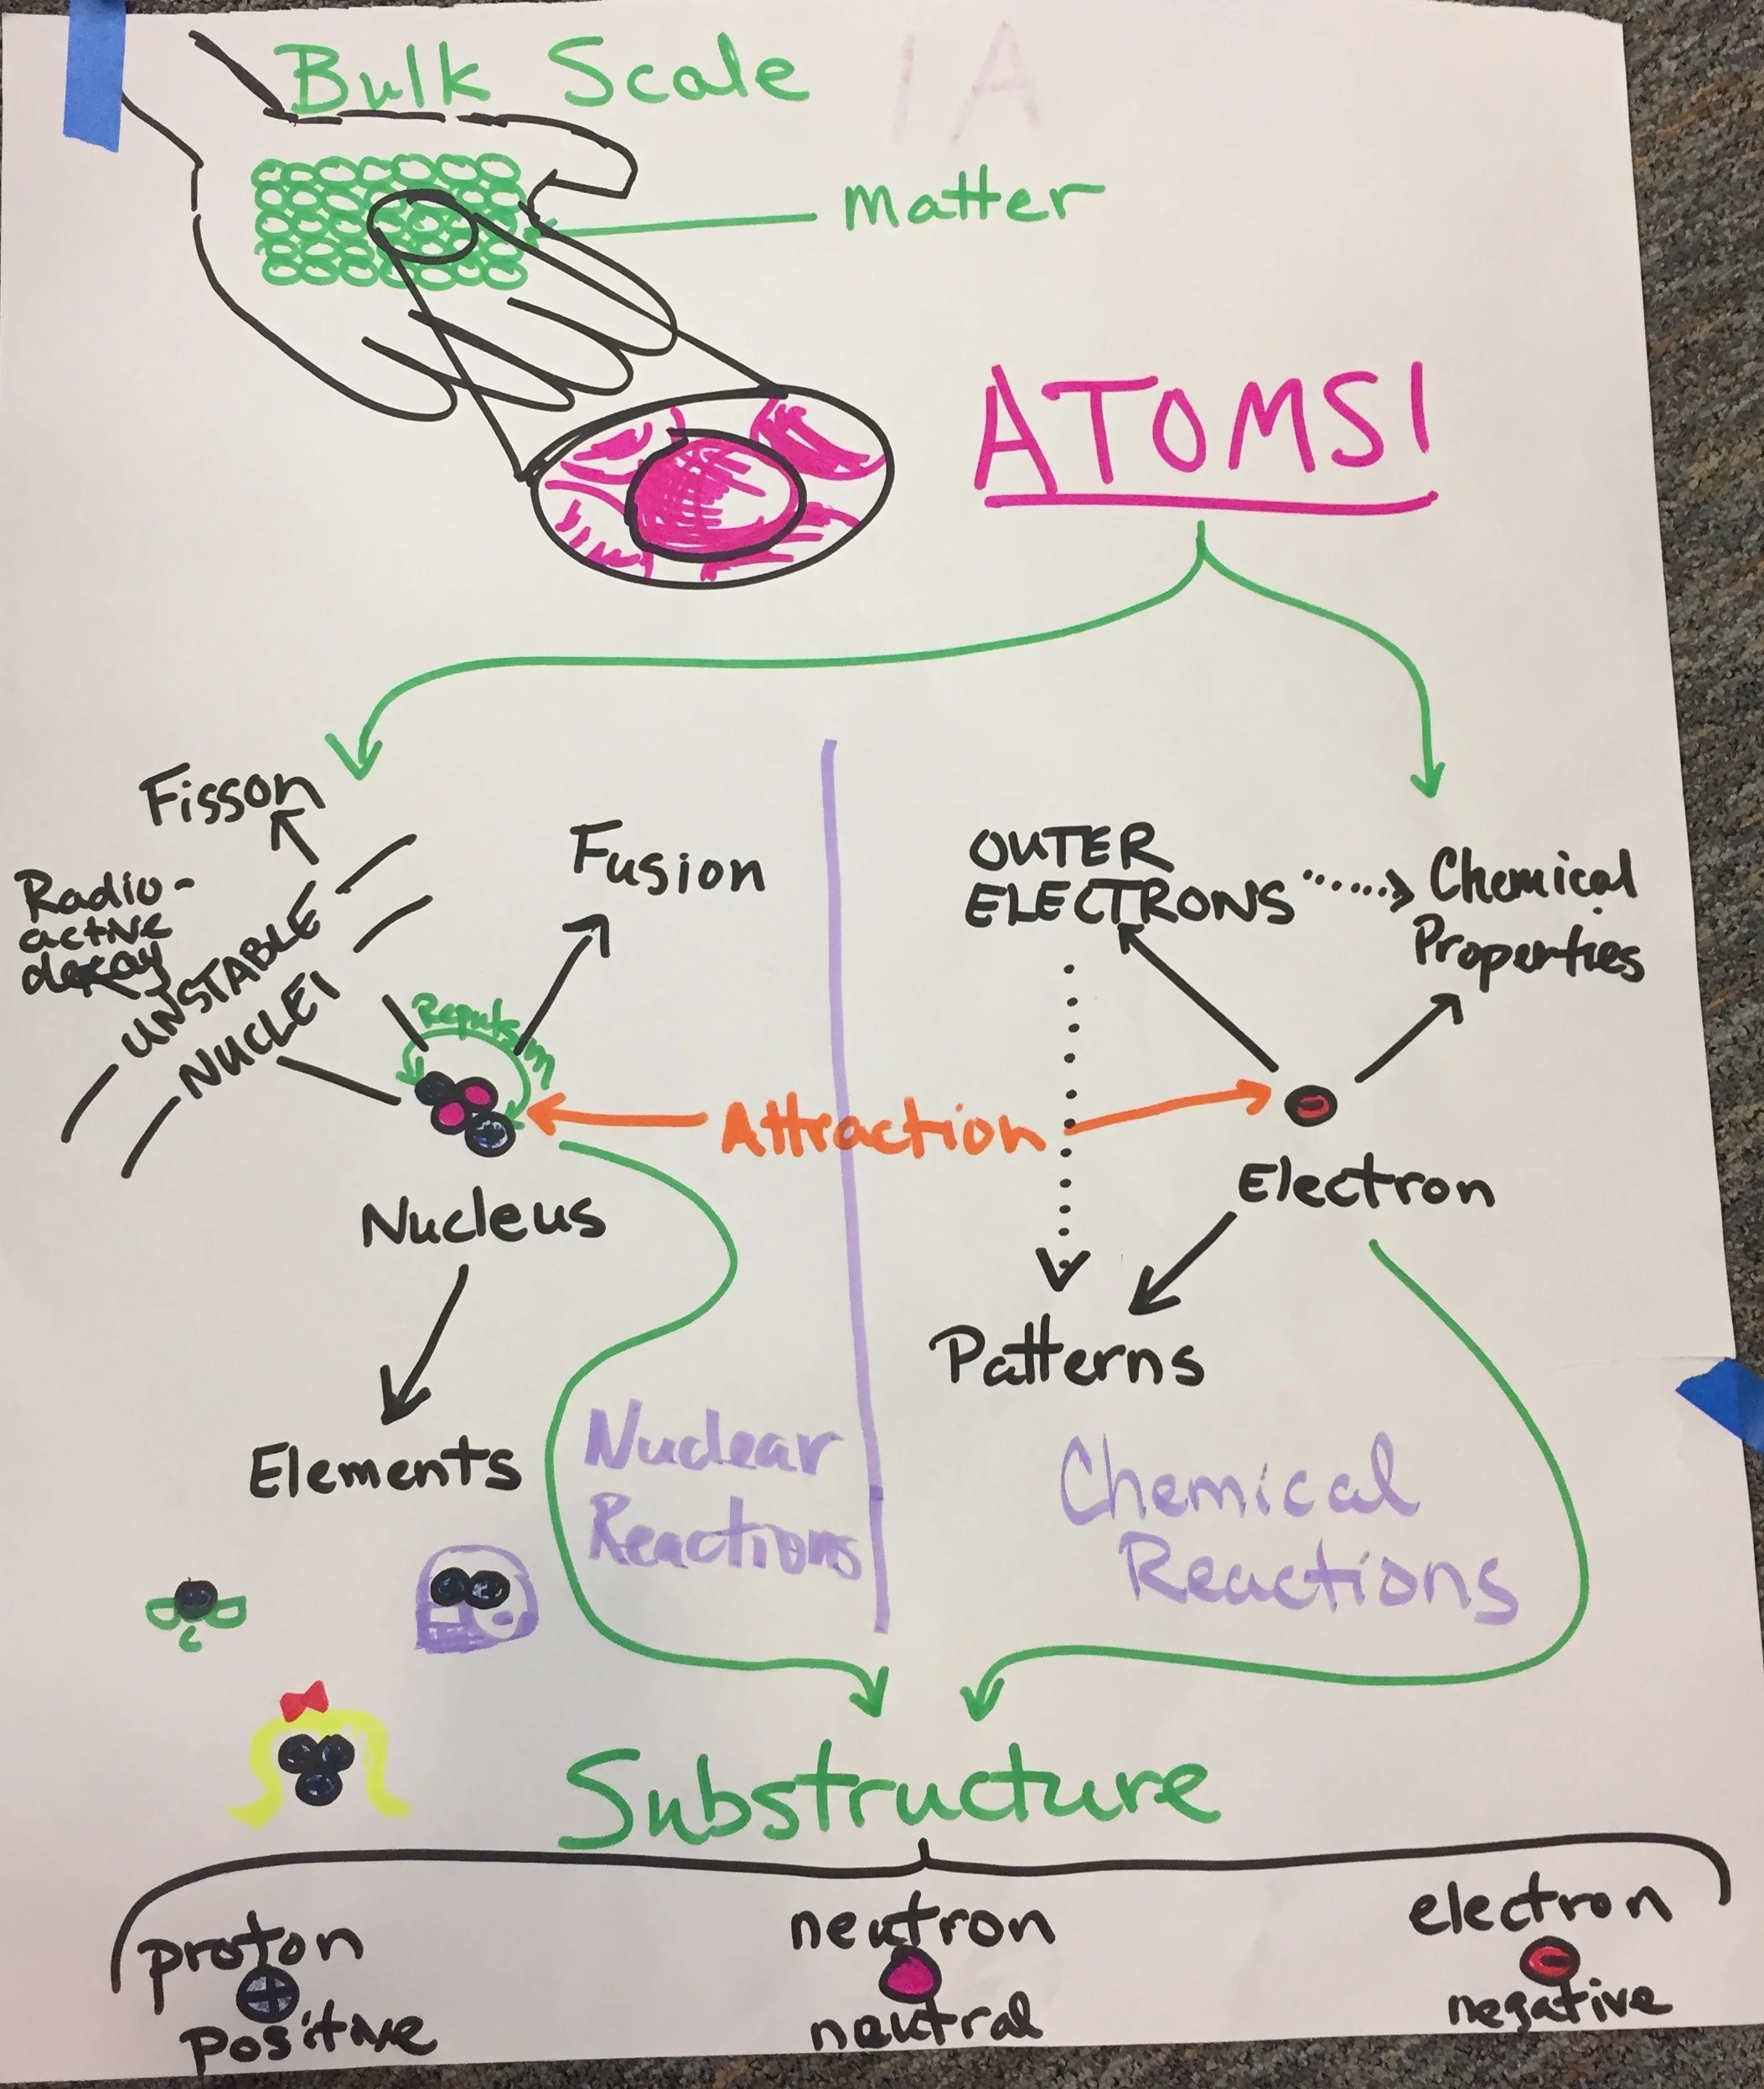 Bulk Scale
matter
ATOMS!
Fisson
Fusion
Radio-
active
decay
UNSTABLE
NUCLEI
Repulsion
OUTER
ELECTRONS
Chemical
Properties
Attraction
Nucleus
Electron
Elements
Patterns
Nuclear
Reactions
Chemical
Reactions
Substructure
proton
positive
neutron
neutral
electron
negative